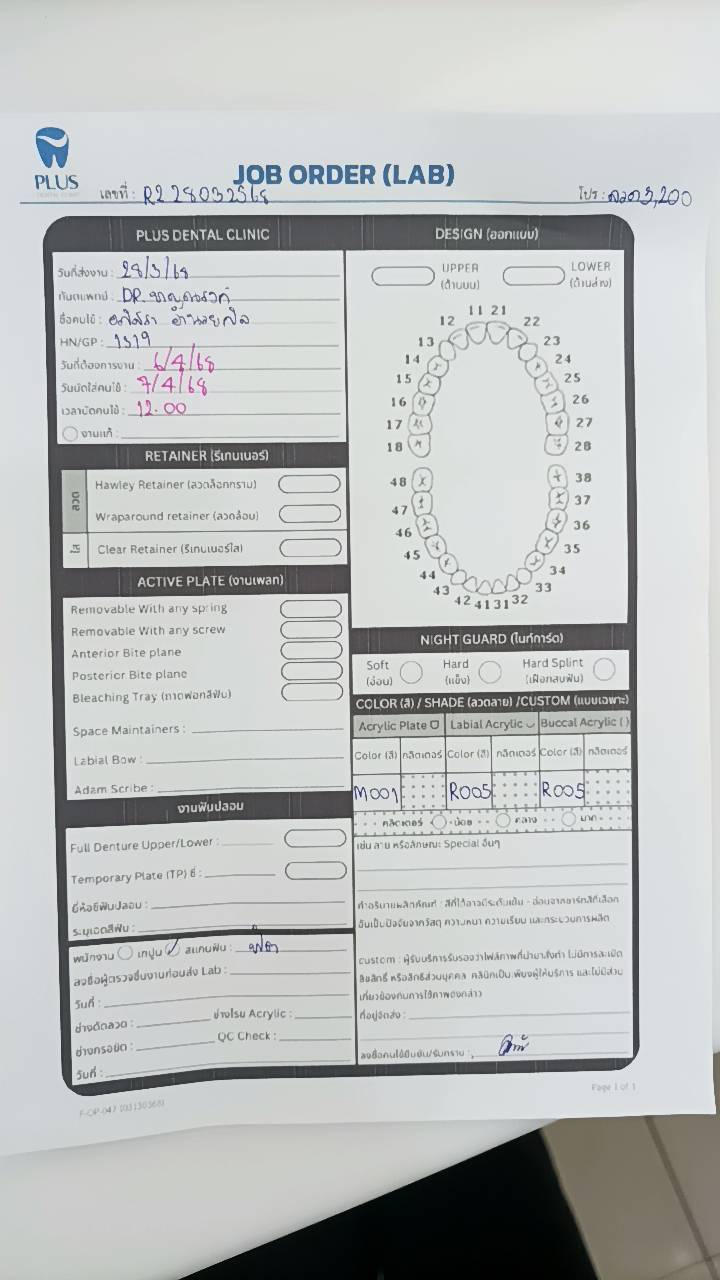 PLUS
JOB ORDER (LAB)
เลขที่ : R228032568
โปร : ลวด 3,200
PLUS DENTAL CLINIC
วันที่ส่งงาน : 28/3/68
ทันตแพทย์ : DR.
ชื่อคนไข้ :
HN/GP : 1319
วันที่ต้องการงาน : 6/4/68
วันนัดใส่คนไข้ : 7/4/68
เวลานัดคนไข้ : 12.00
งานแก้ :
RETAINER (รีเทนเนอร์)
ลวด
Hawley Retainer (ลวดล็อกกราม)
Wraparound retainer (ลวดล้อม)
ใส
Clear Retainer (รีเทนเนอร์ใส)
ACTIVE PLATE (งานเพลท)
Removable With any spring
Removable With any screw
Anterior Bite plane
Posterior Bite plane
Bleaching Tray (ถาดฟอกสีฟัน)
Space Maintainers :
Labial Bow :
Adam Scribe :
งานฟันปลอม
Full Denture Upper/Lower :
Temporary Plate (TP) ซี่ :
ยี่ห้อซี่ฟันปลอม :
ระบุเฉดสีฟัน :
พนักงาน เทปูน สแกนฟัน :
ลงชื่อผู้ตรวจชิ้นงานก่อนส่ง Lab :
วันที่ :
ช่างดัดลวด : ช่างโรย Acrylic :
ช่างกรอขัด : QC Check :
วันที่ :
DESIGN (ออกแบบ)
UPPER (ด้านบน)
LOWER (ด้านล่าง)
11 21
12 22
13 23
14 24
15 25
16 26
17 27
18 28
48 38
47 37
46 36
45 35
44 34
43 33
42 41 31 32
NIGHT GUARD (ไนท์การ์ด)
Soft (อ่อน)
Hard (แข็ง)
Hard Splint (เฝือกสบฟัน)
COLOR (สี) / SHADE (ลวดลาย) /CUSTOM (แบบเฉพาะ)
Acrylic Plate Labial Acrylic Buccal Acrylic ( )
Color (สี) กลิตเตอร์ Color (สี) กลิตเตอร์ Color (สี) กลิตเตอร์
M001 R005 R005
กลิตเตอร์ น้อย กลาง มาก
เช่น ลาย หรือลักษณะ Special อื่นๆ
คำอธิบายผลิตภัณฑ์ : สีที่ได้อาจมีระดับเข้ม - อ่อนจากชาร์ทสีที่เลือก
อันเป็นปัจจัยจากวัสดุ ความหนา ความเรียบ และกระบวนการผลิต
custom : ผู้รับบริการรับรองว่าไฟล์ภาพที่นำมาสั่งทำ ไม่มีการละเมิด
ลิขสิทธิ์ หรือสิทธิส่วนบุคคล คลินิกเป็นเพียงผู้ให้บริการ และไม่มีส่วน
เกี่ยวข้องกับการใช้ภาพดังกล่าว
ที่อยู่จัดส่ง :
ลงชื่อคนไข้ยืนยัน/รับทราบ :
Page 1 of 1